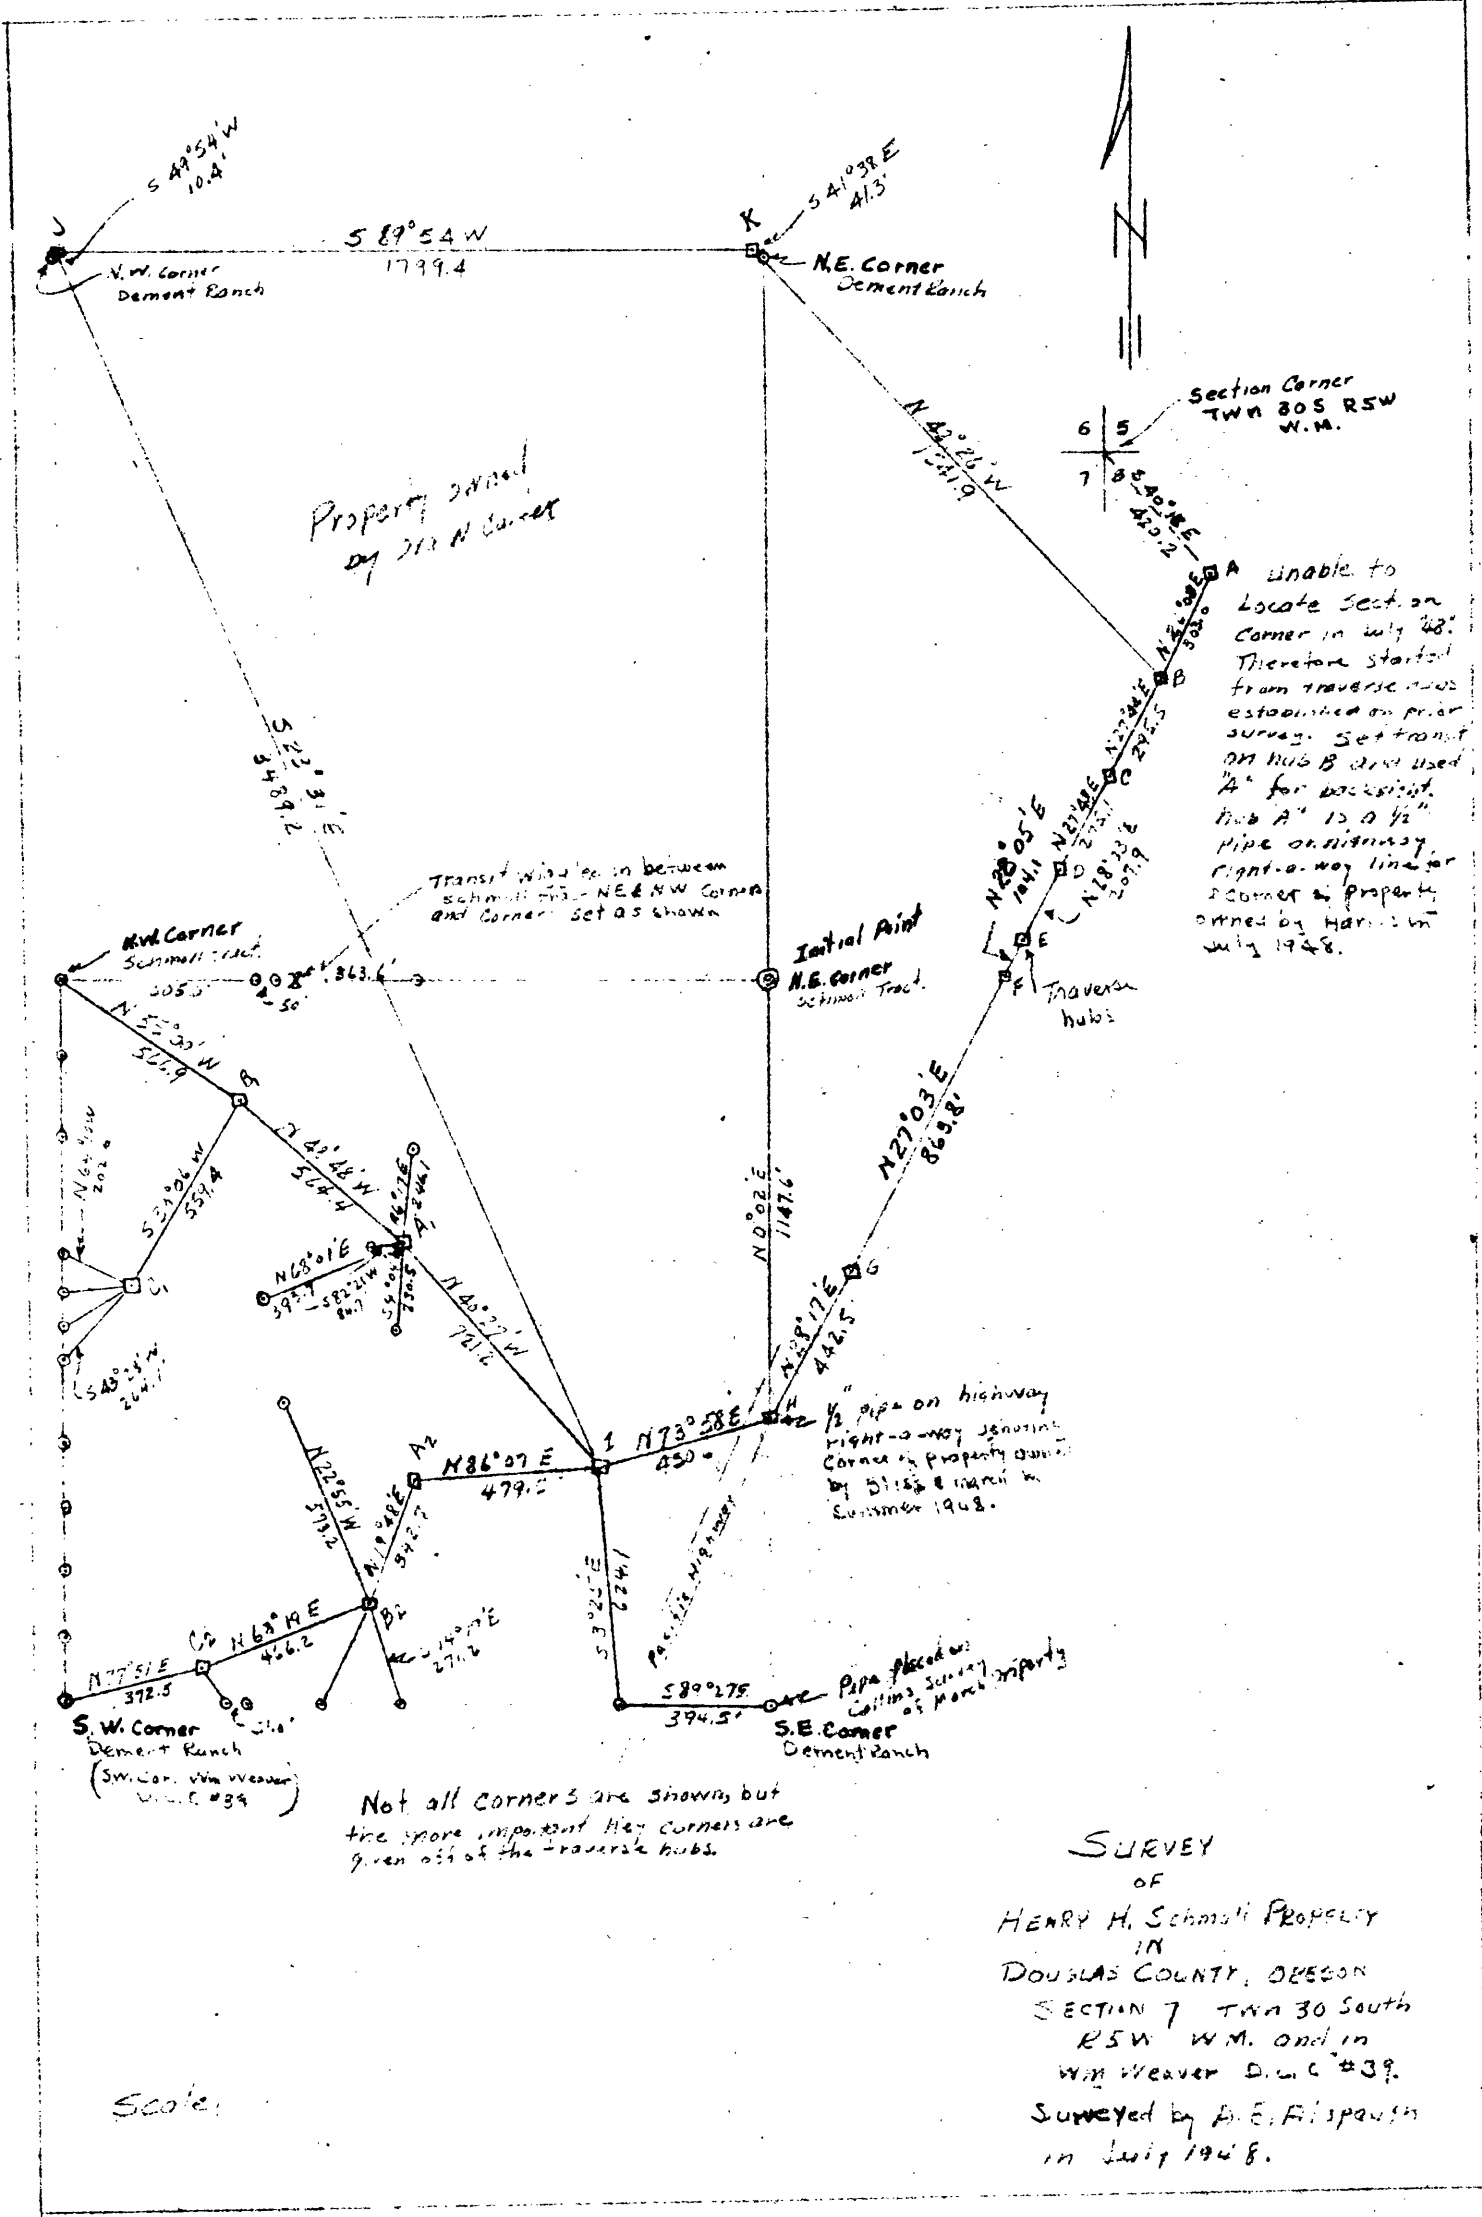 S 49°54'W
10.4'
J
S 89°54 W
1799.4
N.W. Corner
Dement Ranch
K
S 41°38 E
41.3'
N.E. Corner
Dement Ranch
N
Section Corner
TWN 30S R5W
W.M.
6 5
7 8
S 40°18 E
A
N 42°26' W
Property owned
by
B
C
D
E
F
G
H
Unable to
Locate Section
Corner in July '48.
Therefore started
from traverse hubs
established on prior
survey. Set transit
on hub B and used
"A" for backsight.
hub "A" is a 1/2"
Pipe on highway
right-a-way line for
Corner of property
owned by Harris in
July 1948.
N27°44'E
295.5
N27°48E
275.1
N28°33'E
207.9
N28°05'E
104.1
Traverse
hubs
N27°03'E
869.8'
N28°17'E
442.5'
3489.2
Transit in between
Schmoll NE & NW Corners
and Corners set as shown
N.W. Corner
Schmoll Tract.
363.6'
50'
Initial Point
N.E. Corner
Schmoll Tract.
566.9
N 49°48' W
564.4
559.4
N64°
202.0
C1
S43°25'W
264.1'
N6°17'E
246.1
A1
N68°01'E
393.7
S82°21W
84.7
N 40°27' W
721.2
N0°02'E
1147.6'
1/2" pipe on highway
right-a-way
Corner of property owned
by Bliss & March in
Summer 1948.
1
N73°58E
450
A2
N86°07 E
479.5
N22°55'W
573.2
N19°48'E
342.7
B2
271.2
S3°25'E
624.1
Pacific Highway
C2
N63°19 E
466.2
N77°51 E
372.5
S89°27E
394.5'
Pipe placed on
Collins Survey
of March Property
S.E. Corner
Dement Ranch
S.W. Corner
Dement Ranch
(S.W. Cor. Wm Weaver
D.L.C #39)
Not all corners are shown, but
the more important key corners are
given off of the traverse hubs.
SURVEY
OF
HENRY H. Schmoll PROPERTY
IN
DOUGLAS COUNTY, OREGON
SECTION 7 TWN 30 South
R5W W.M. and in
Wm Weaver D.L.C #39.
Surveyed by A.E. Alspaugh
in July 1948.
Scale: